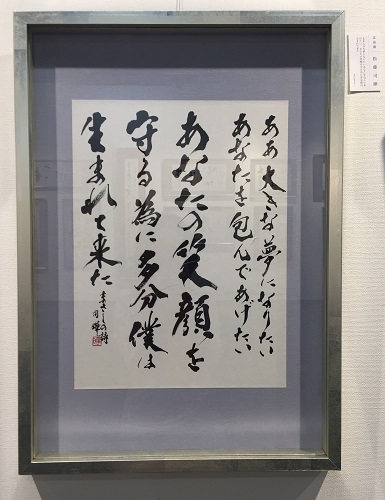 ああ大きな夢になりたい
あなたを包んであげたい
あなたの笑顔を
守る為に多分僕は
生まれて来た
まさしの詩